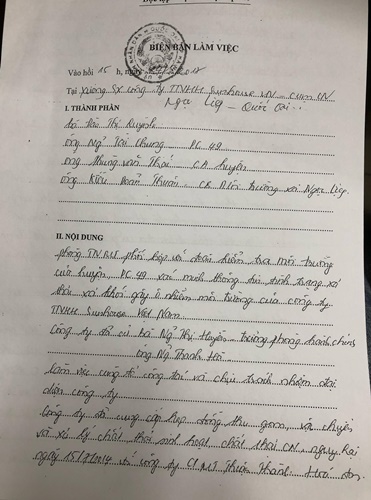 BIÊN BẢN LÀM VIỆC
Vào hồi 15 h, ngày
Tại Xưởng SX công ty TNHH Sunhouse VN cụm CN
Ngọc Liệp - Quốc Oai
I. THÀNH PHẦN
bà Thị Quỳnh
ông Ng Chung PC 49
ông Văn CA huyện
ông Kiều Thuấn CB Môi trường xã Ngọc Liệp
II. NỘI DUNG
phòng TN MT phối hợp với đoàn kiểm tra môi trường
của huyện, PC 49 xác minh thông tin tình trạng xả
thải, xả khói gây ô nhiễm môi trường của công ty
TNHH Sunhouse Việt Nam
Công ty đã cử bà Ng Thị Huyền trưởng phòng hành chính
ông Ng Thanh Hà
làm việc cùng tổ công tác và chịu trách nhiệm đại
diện công ty
Công ty đã cung cấp hợp đồng thu gom, vận chuyển
và xử lý chất thải sinh hoạt, chất thải CN, nguy hại
ngày với công ty Thuận Thành